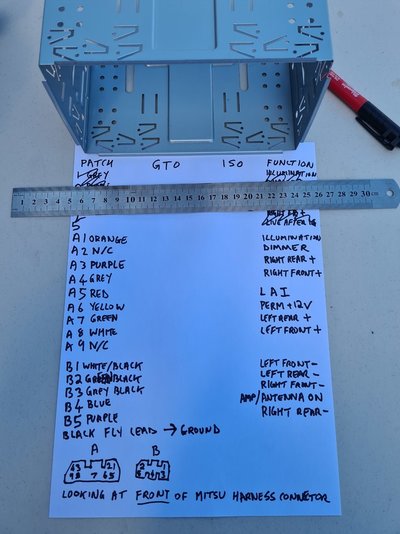 PATCH GTO ISO FUNCTION
GREY ILLUMINATION
1 2 3 4 5 6 7 8 9 10 11 12 13 14 15 16 17 18 19 20 21 22 23 24 25 26 27 28 29 30 cm
5 LIVE AFTER IG
A1 ORANGE ILLUMINATION
A2 N/C DIMMER
A3 PURPLE RIGHT REAR +
A4 GREY RIGHT FRONT +
A5 RED LAI
A6 YELLOW PERM +12V
A7 GREEN LEFT REAR +
A8 WHITE LEFT FRONT +
A9 N/C
B1 WHITE/BLACK LEFT FRONT -
B2 GREEN BLACK LEFT REAR -
B3 GREY BLACK RIGHT FRONT -
B4 BLUE AMP/ANTENNA ON
B5 PURPLE RIGHT REAR -
BLACK FLY LEAD → GROUND
A B
LOOKING AT FRONT OF MITSU HARNESS CONNECTOR